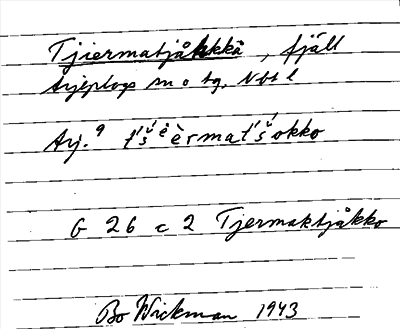 Tjiermatjåkkå, fjäll
Arjeplogs sn o tg, Nbt l
Arj. 9 t́šᵉèrmat́šokko
G 26 c 2 Tjermaktjåkko
Bo Wickman 1943